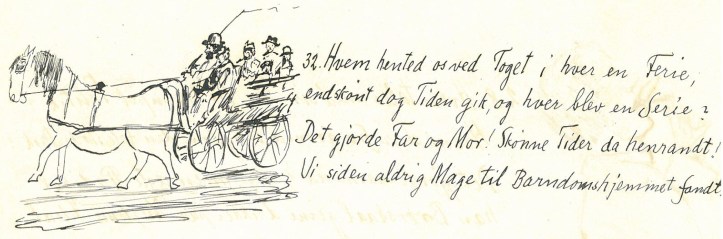 32. Hvem hented os ved Toget i hver en Ferie,
endskønt dog Tiden gik, og hver blev en Serie?
Det gjorde Far og Mor! Skønne Tider da henrandt!
Vi siden aldrig Mage til Barndomshjemmet fandt.